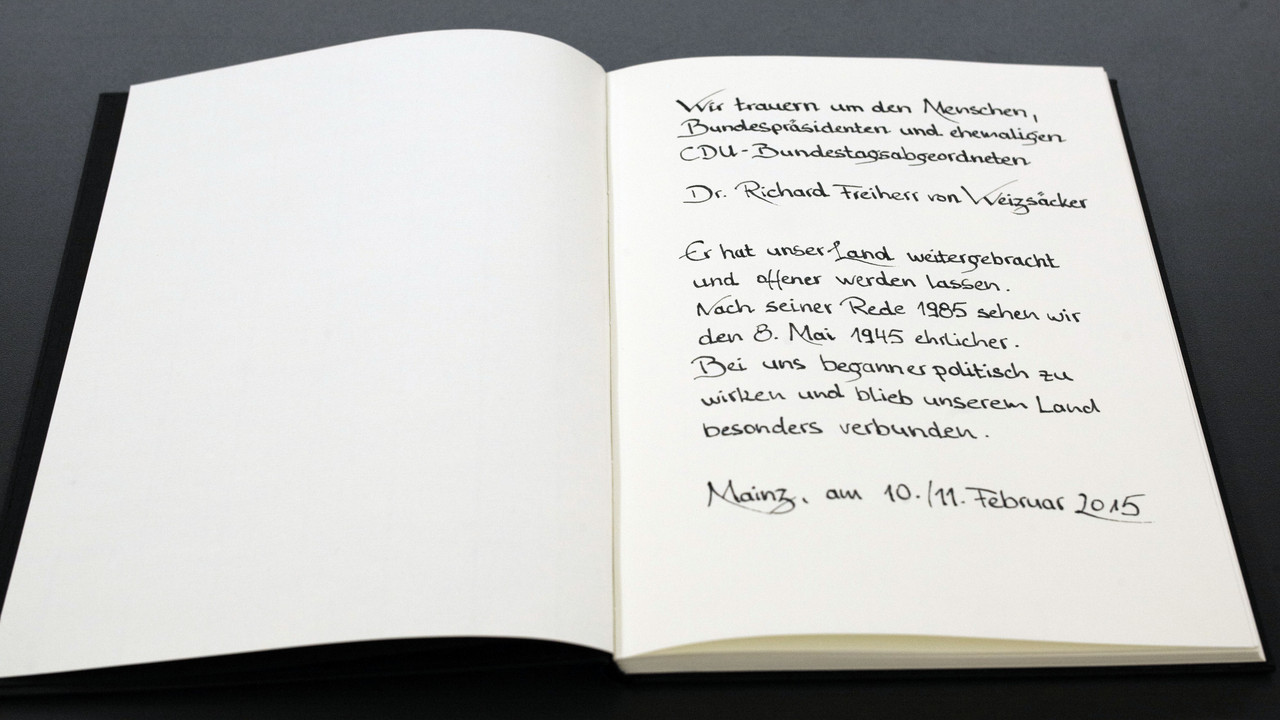 Wir trauern um den Menschen,
Bundespräsidenten und ehemaligen
CDU-Bundestagsabgeordneten
Dr. Richard Freiherr von Weizsäcker
Er hat unser Land weitergebracht
und offener werden lassen.
Nach seiner Rede 1985 sehen wir
den 8. Mai 1945 ehrlicher.
Bei uns begann er politisch zu
wirken und blieb unserem Land
besonders verbunden.
Mainz, am 10./11. Februar 2015